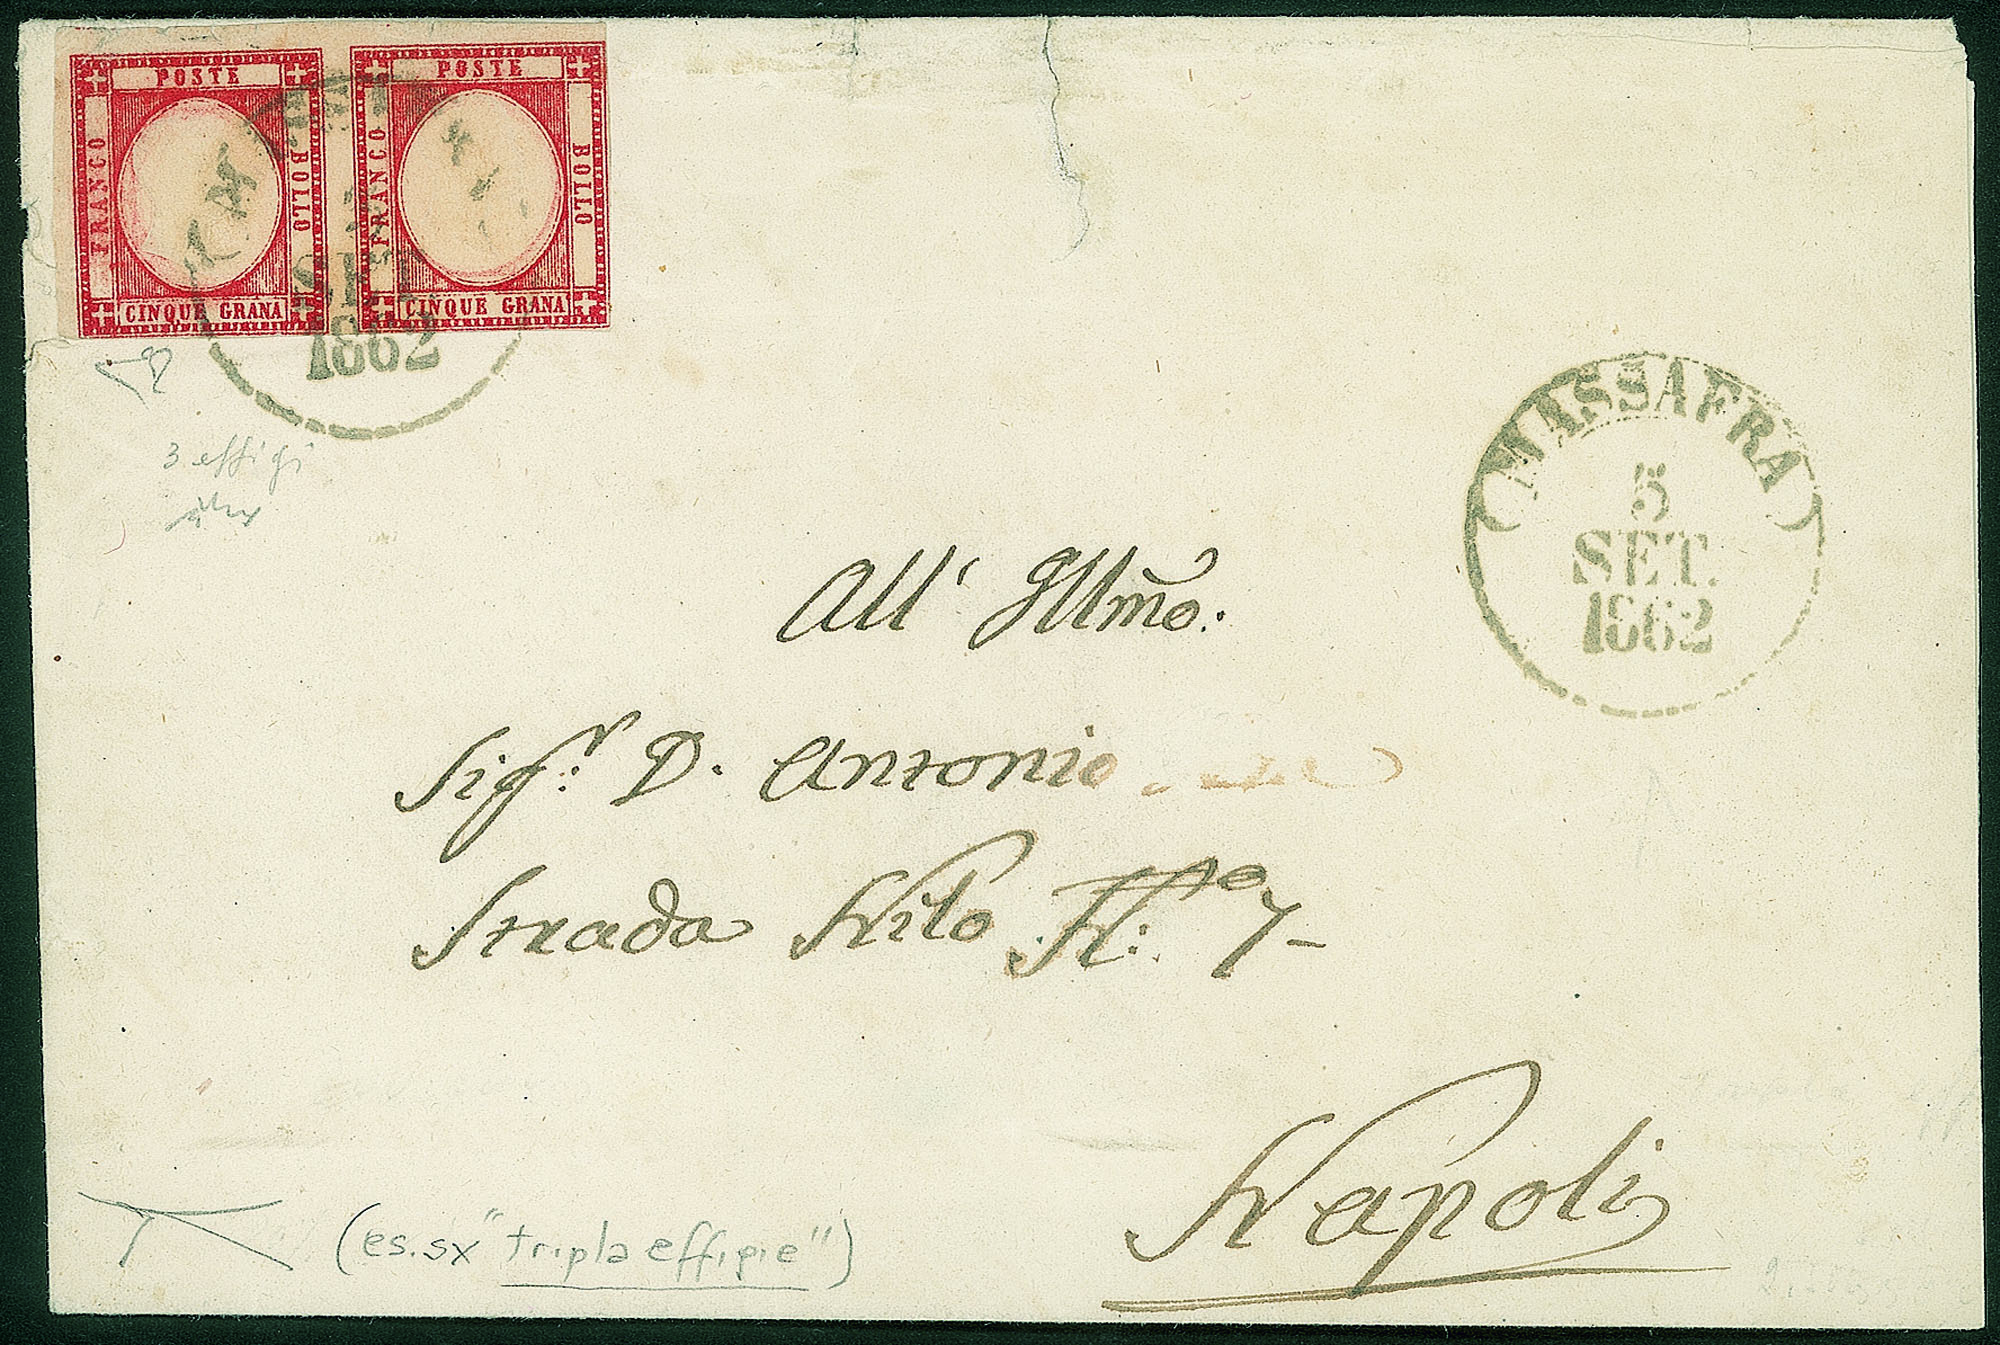 POSTE
FRANCO
BOLLO
CINQUE GRANA
POSTE
FRANCO
BOLLO
CINQUE GRANA
SET.
1862
3 effigi
(MASSAFRA)
5
SET.
1862
All' Illmo:
Sigr: D. Antonio
Strada Nilo No: 7-
Napoli
(es. sx "tripla effigie")